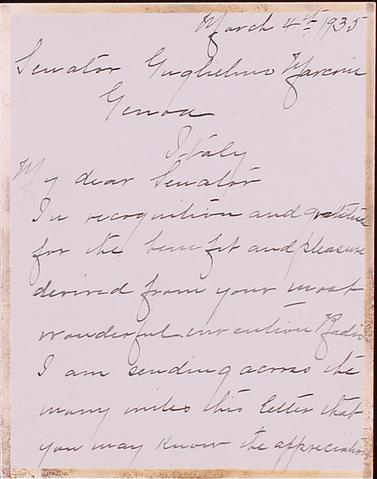 March 4th 1935
Senator Guglielmo Marconi
Genoa
Italy
My dear Senator
In recognition and gratitude
for the benefit and pleasure
derived from your most
wonderful invention Radio
I am sending across the
many miles this letter that
you may know the appreciation